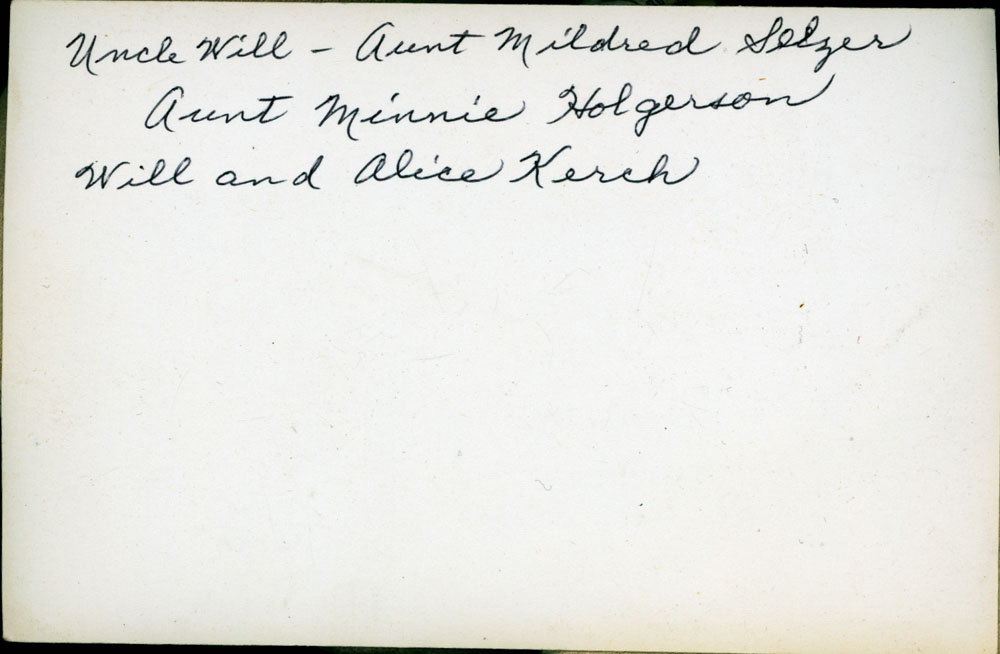 Uncle Will - Aunt Mildred Selzer
Aunt Minnie Holgerson
Will and Alice Kerch